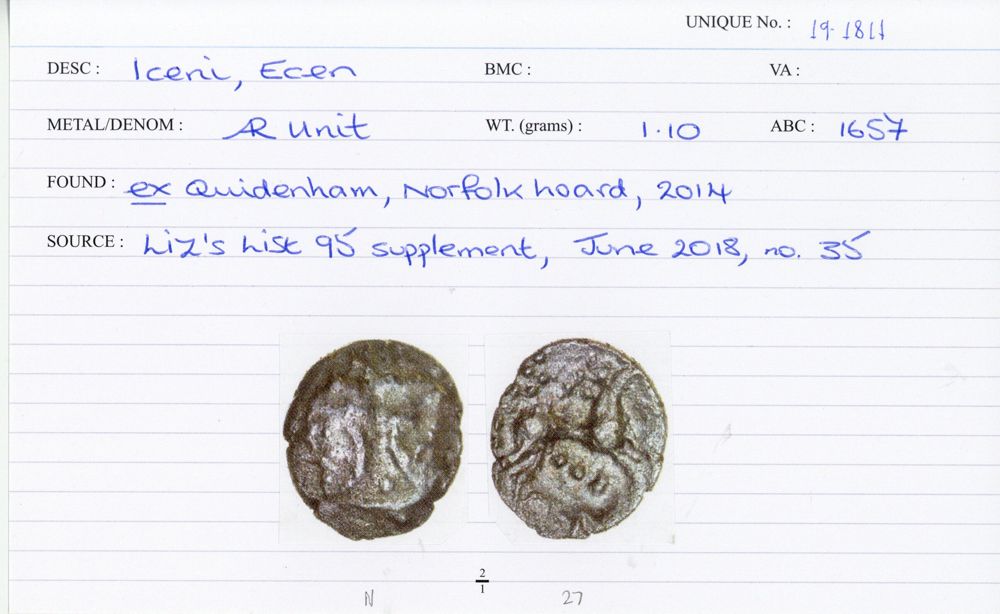 UNIQUE No. : 19-1811
DESC : Iceni, Ecen BMC : VA :
METAL/DENOM : AR Unit WT. (grams) : 1.10 ABC : 1657
FOUND : ex Quidenham, Norfolk hoard, 2014
SOURCE : Liz's List 95 supplement, June 2018, no. 35
2
1
N 27